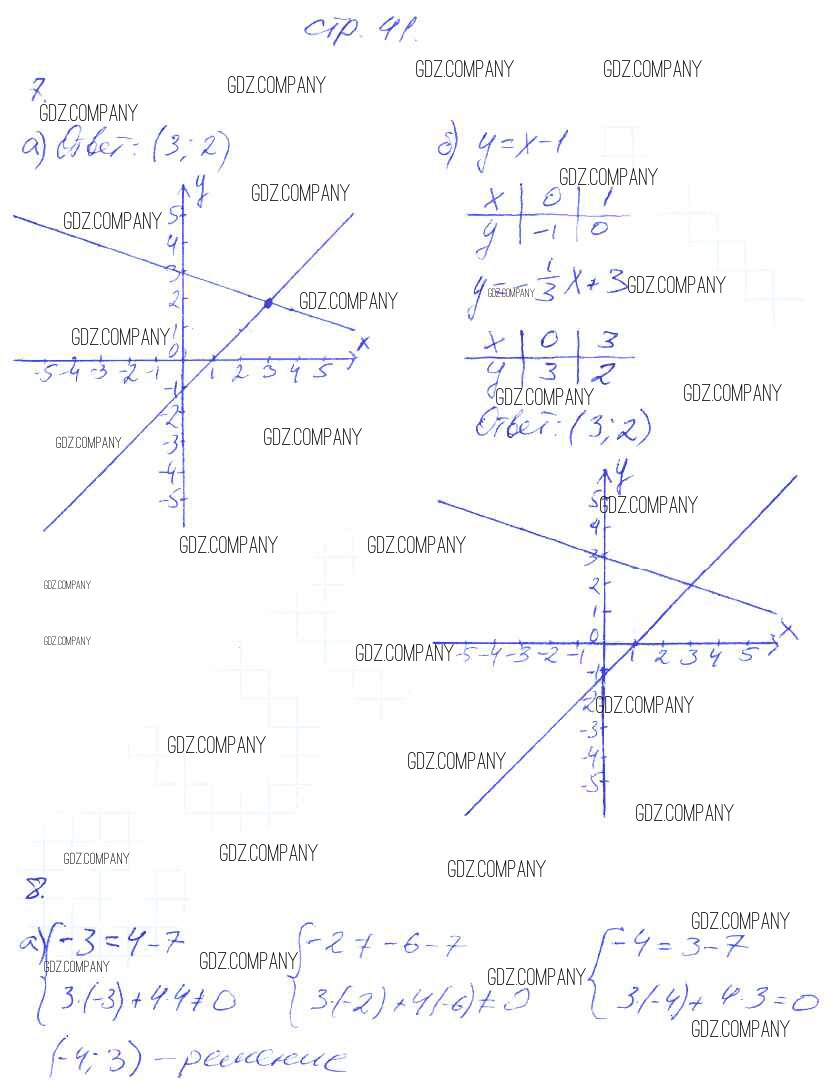 стр. 41.
GDZ.COMPANY GDZ.COMPANY GDZ.COMPANY
7.
GDZ.COMPANY
а) Ответ: (3; 2)
y
GDZ.COMPANY
GDZ.COMPANY
5
4
3
2
GDZ.COMPANY
1
GDZ.COMPANY
x
0
-5 -4 -3 -2 -1 1 2 3 4 5
-1
-2
GDZ.COMPANY
GDZ.COMPANY
-3
-4
-5
GDZ.COMPANY GDZ.COMPANY
GDZ.COMPANY
GDZ.COMPANY
б) y = x - 1
GDZ.COMPANY
x | 0 | 1
y | -1 | 0
y = - 1/3 x + 3
GDZ.COMPANY
GDZ.COMPANY
x | 0 | 3
y | 3 | 2
GDZ.COMPANY GDZ.COMPANY
Ответ: (3; 2)
y
5
GDZ.COMPANY
4
3
2
1
x
0
GDZ.COMPANY
-5 -4 -3 -2 -1 1 2 3 4 5
-1
-2
GDZ.COMPANY
-3
-4
-5
GDZ.COMPANY GDZ.COMPANY
GDZ.COMPANY
GDZ.COMPANY GDZ.COMPANY GDZ.COMPANY
8.
GDZ.COMPANY
а) { -3 = 4 - 7
3·(-3) + 4·4 ≠ 0
{ -2 ≠ -6 - 7
3·(-2) + 4(-6) ≠ 0
{ -4 = 3 - 7
3(-4) + 4·3 = 0
GDZ.COMPANY GDZ.COMPANY GDZ.COMPANY
GDZ.COMPANY
(-4; 3) - решение